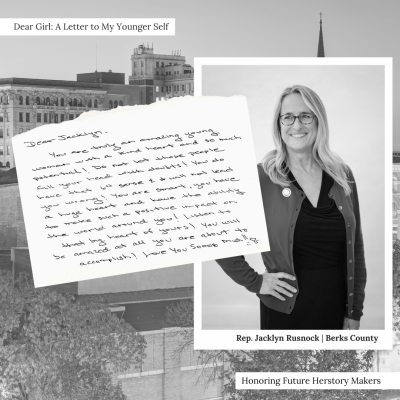 Dear Girl: A Letter to My Younger Self
Dear Jacklyn,
You are truly an amazing young
woman with a kind heart and so much
potential! Do not let people
fill your head with doubts! You do
have that 6 sense & it will not lead
you wrong! You are smart, you have
a huge heart and have the ability
to make such a positive impact on
the world around you! Listen to
that big heart of yours! You will
be amazed at all you are about to
accomplish! Love You Soooo much!!
Rep. Jacklyn Rusnock | Berks County
Honoring Future Herstory Makers